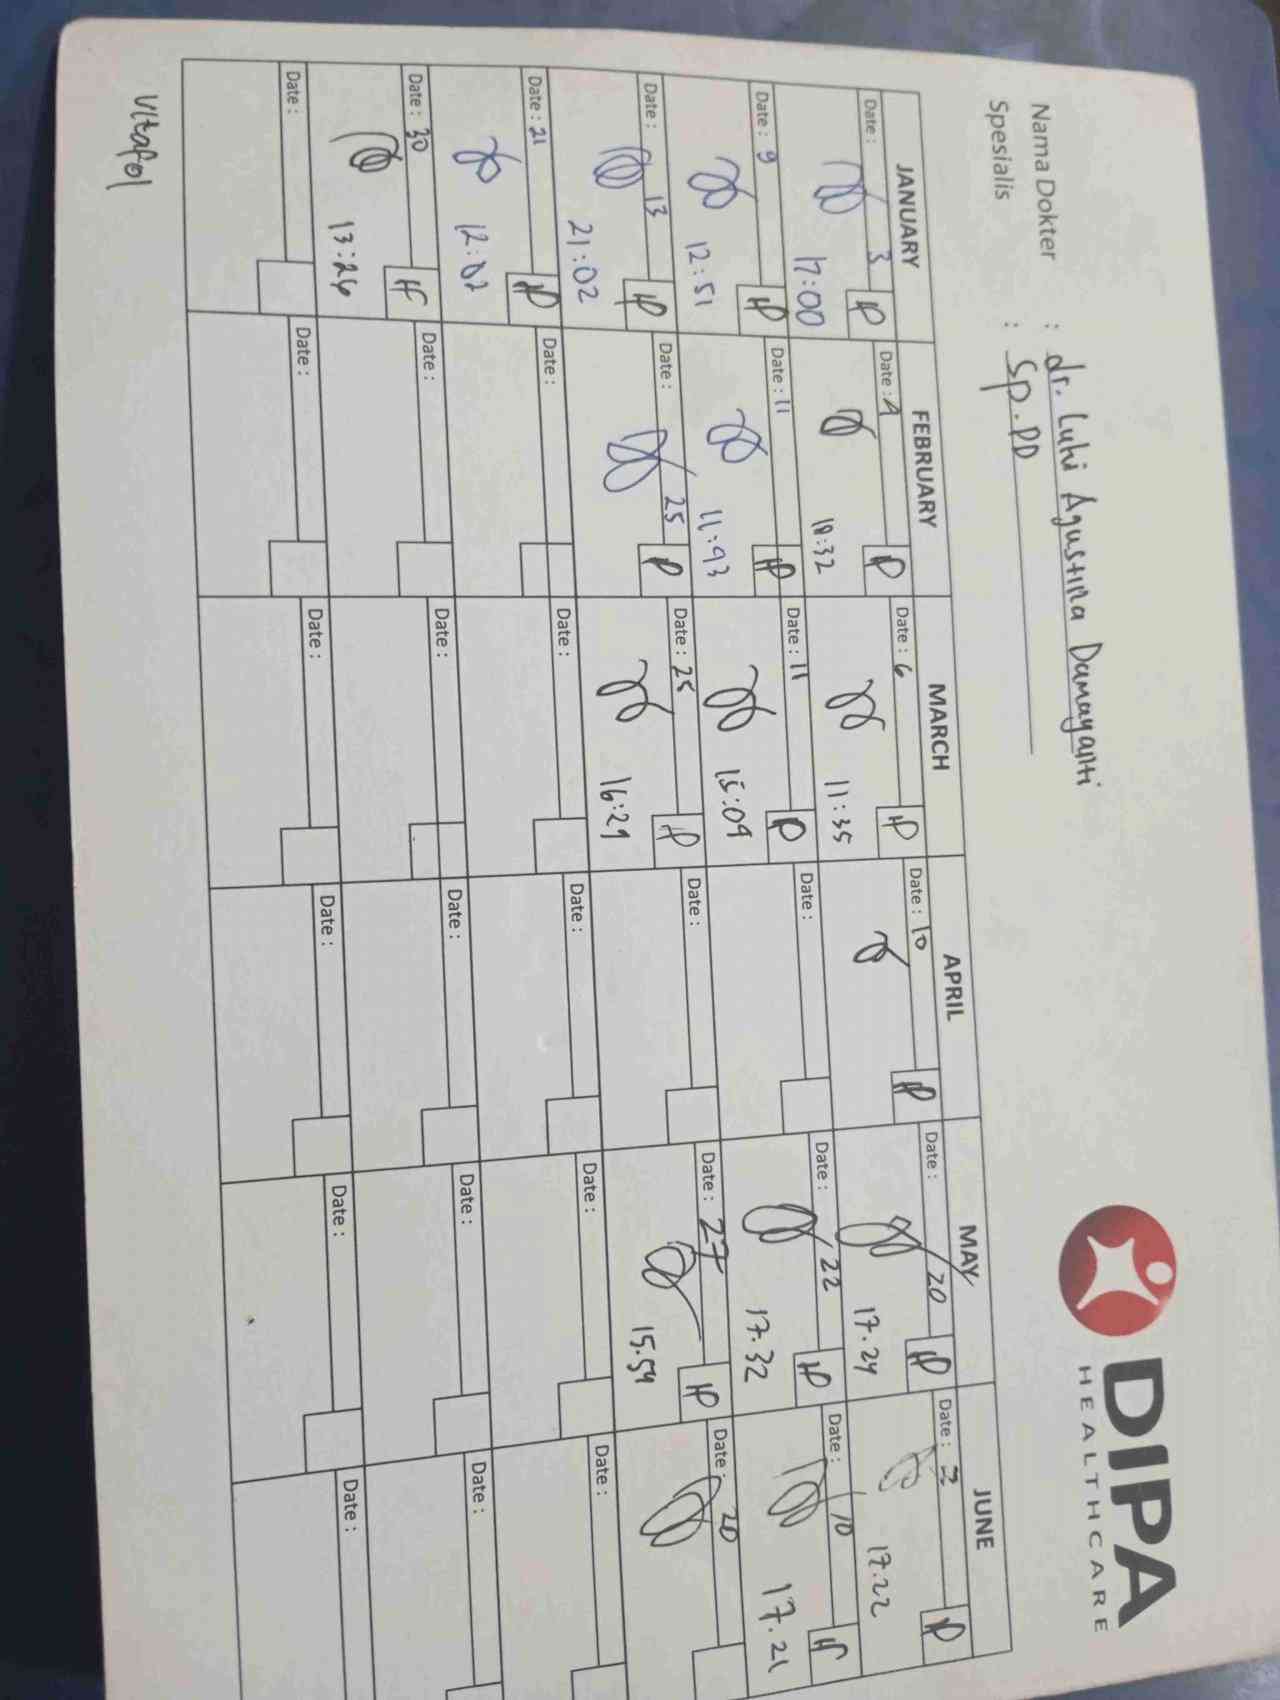 DIPA
HEALTHCARE
Nama Dokter : dr. Luhi Agustina Damayanti
Spesialis : Sp.PD
JANUARY FEBRUARY MARCH APRIL MAY JUNE
Date: 3 Date: 4 Date: 6 Date: 10 Date: 20 Date: 2
17:00 18:32 11:35 17.24 17.22
Date: 9 Date: 11 Date: 11 Date: Date: 22 Date: 10
12:51 11:43 15:09 17.32 17.21
Date: 13 Date: 25 Date: 25 Date: Date: 27 Date: 20
21:02 16:29 15.54
Date: 21 Date: Date: Date: Date: Date:
12:02
Date: 30 Date: Date: Date: Date: Date:
13:26
Date: Date: Date: Date: Date: Date:
Vitafol